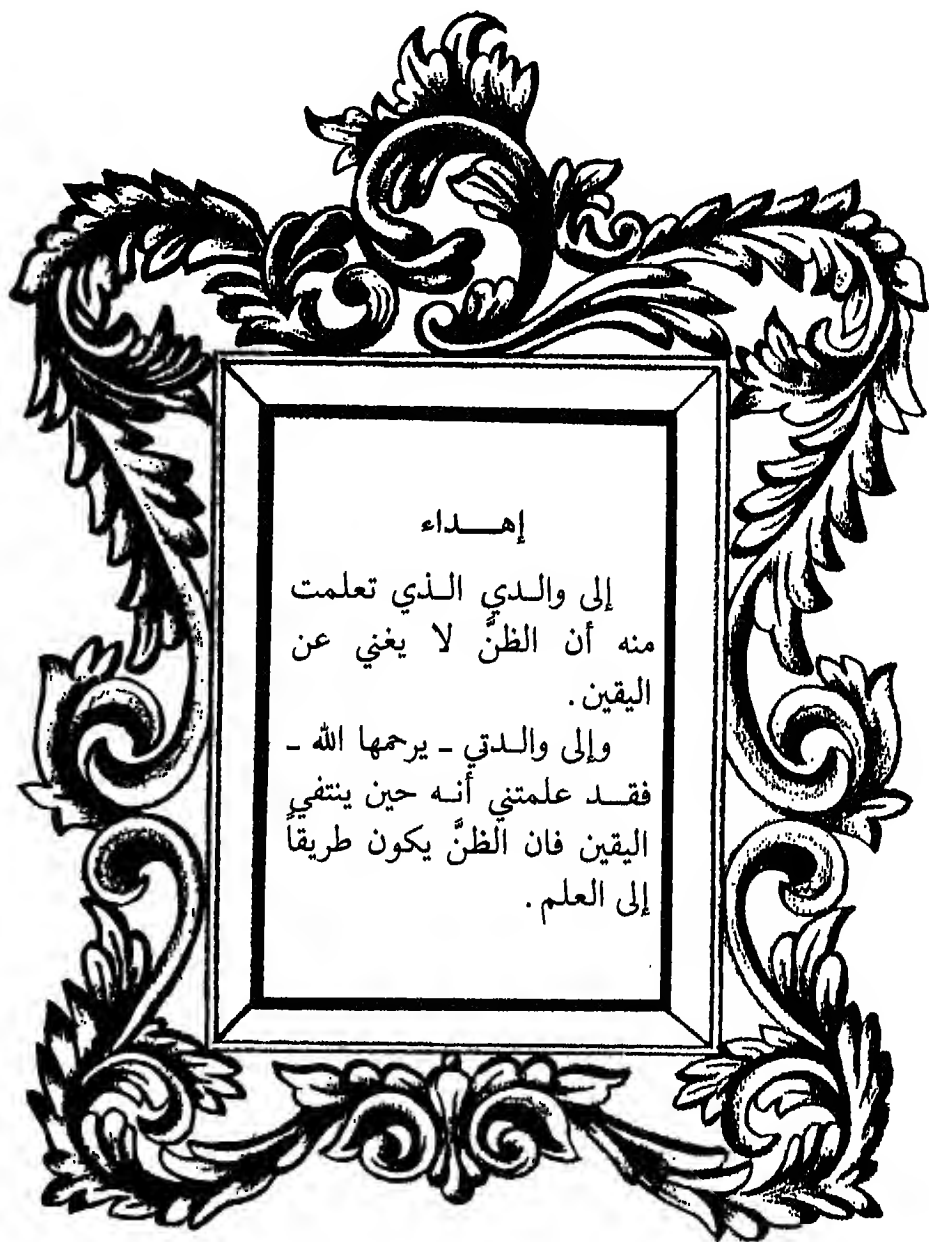 إهــداء
إلى والـدي الـذي تعلمت
منه أن الظنَّ لا يغني عن
اليقين .
وإلى والـدتي ـ يرحمها الله ـ
فقـد علمتني أنـه حين ينتفي
اليقين فان الظنَّ يكون طريقاً
إلى العلم .